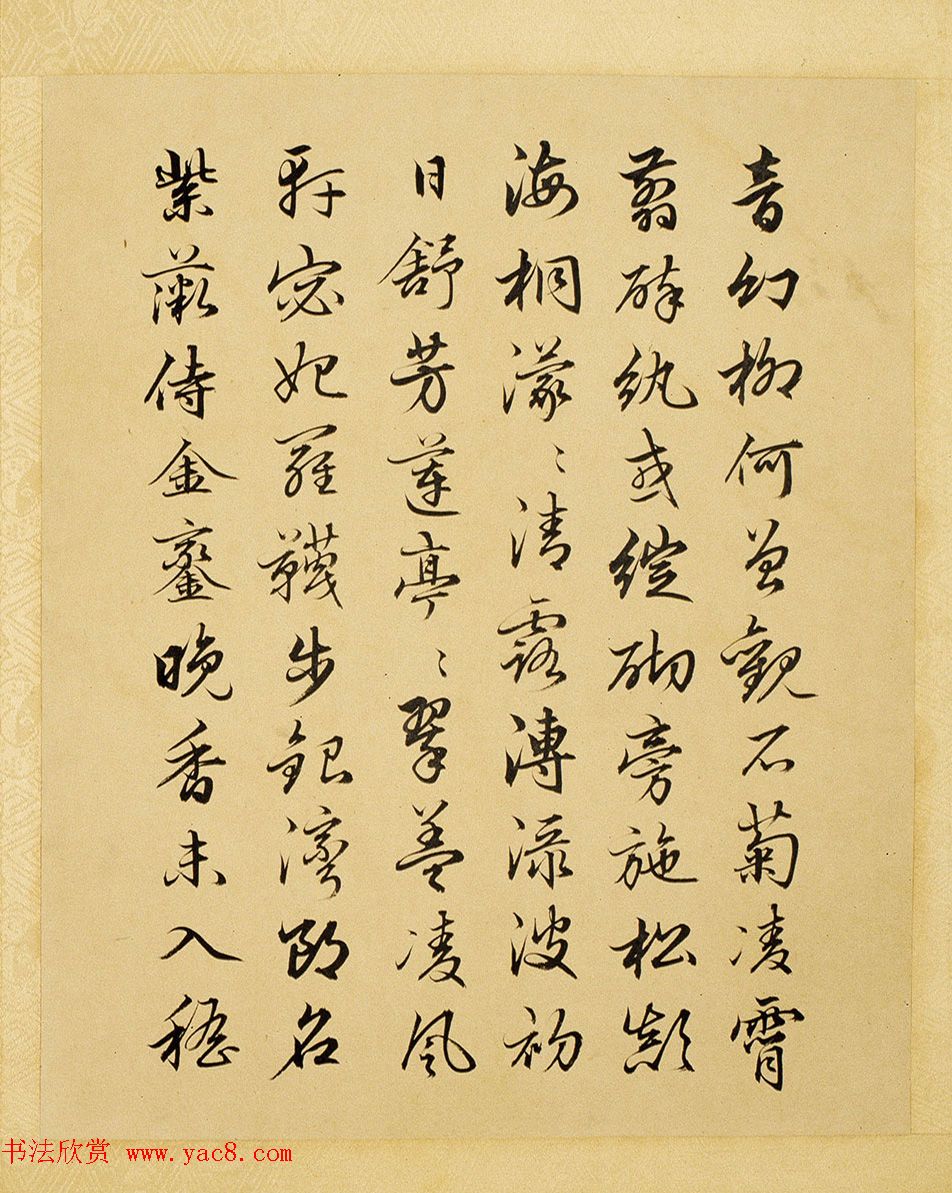 音幻柳何曾觀石菊凌霄
翦碎紈或綻砌旁施松顛
海桐濛〻清露漙淥波初
日舒芳蓮亭〻翠蓋凌風
軒宓妃羅韈步銀灣郎名
紫薇侍金鑾晚香未入嵇
书法欣赏 www.yac8.com